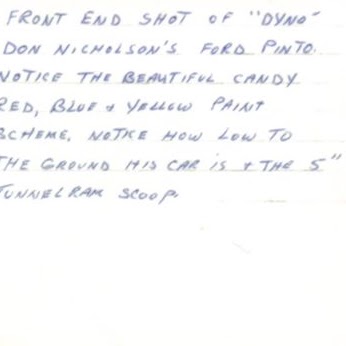 FRONT END SHOT OF "DYNO"
DON NICHOLSON'S FORD PINTO.
NOTICE THE BEAUTIFUL CANDY
RED, BLUE & YELLOW PAINT
SCHEME. NOTICE HOW LOW TO
THE GROUND HIS CAR IS & THE 5"
TUNNELRAM SCOOP.